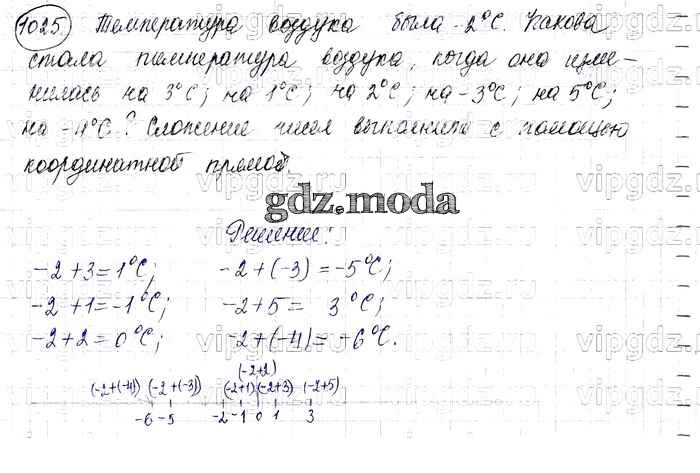 1025. Температура воздуха была -2°C. Какова
стала температура воздуха, когда она изме-
нилась на 3°C; на 1°C; на 2°C; на -3°C; на 5°C;
на -4°C? Сложение чисел выполнить с помощью
координатной прямой.
gdz.moda
Решение:
-2+3=1°C; -2+(-3)=-5°C;
-2+1=-1°C; -2+5= 3°C;
-2+2=0°C; -2+(-4)=-6°C.
(-2+2)
(-2+(-4)) (-2+(-3)) (-2+1) (-2+3) (-2+5)
-6 -5 -2 -1 0 1 3
vipgdz.ru